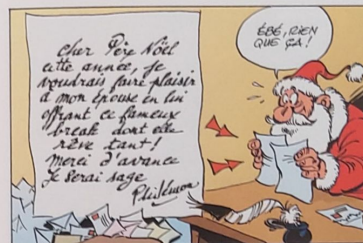 Cher Père Noël
cette année, je
voudrais faire plaisir
à mon épouse en lui
offrant ce fameux
break dont elle
rêve tant!
Merci d'avance
Je serai sage
Philémon
ÉBÉ, RIEN
QUE ÇA!